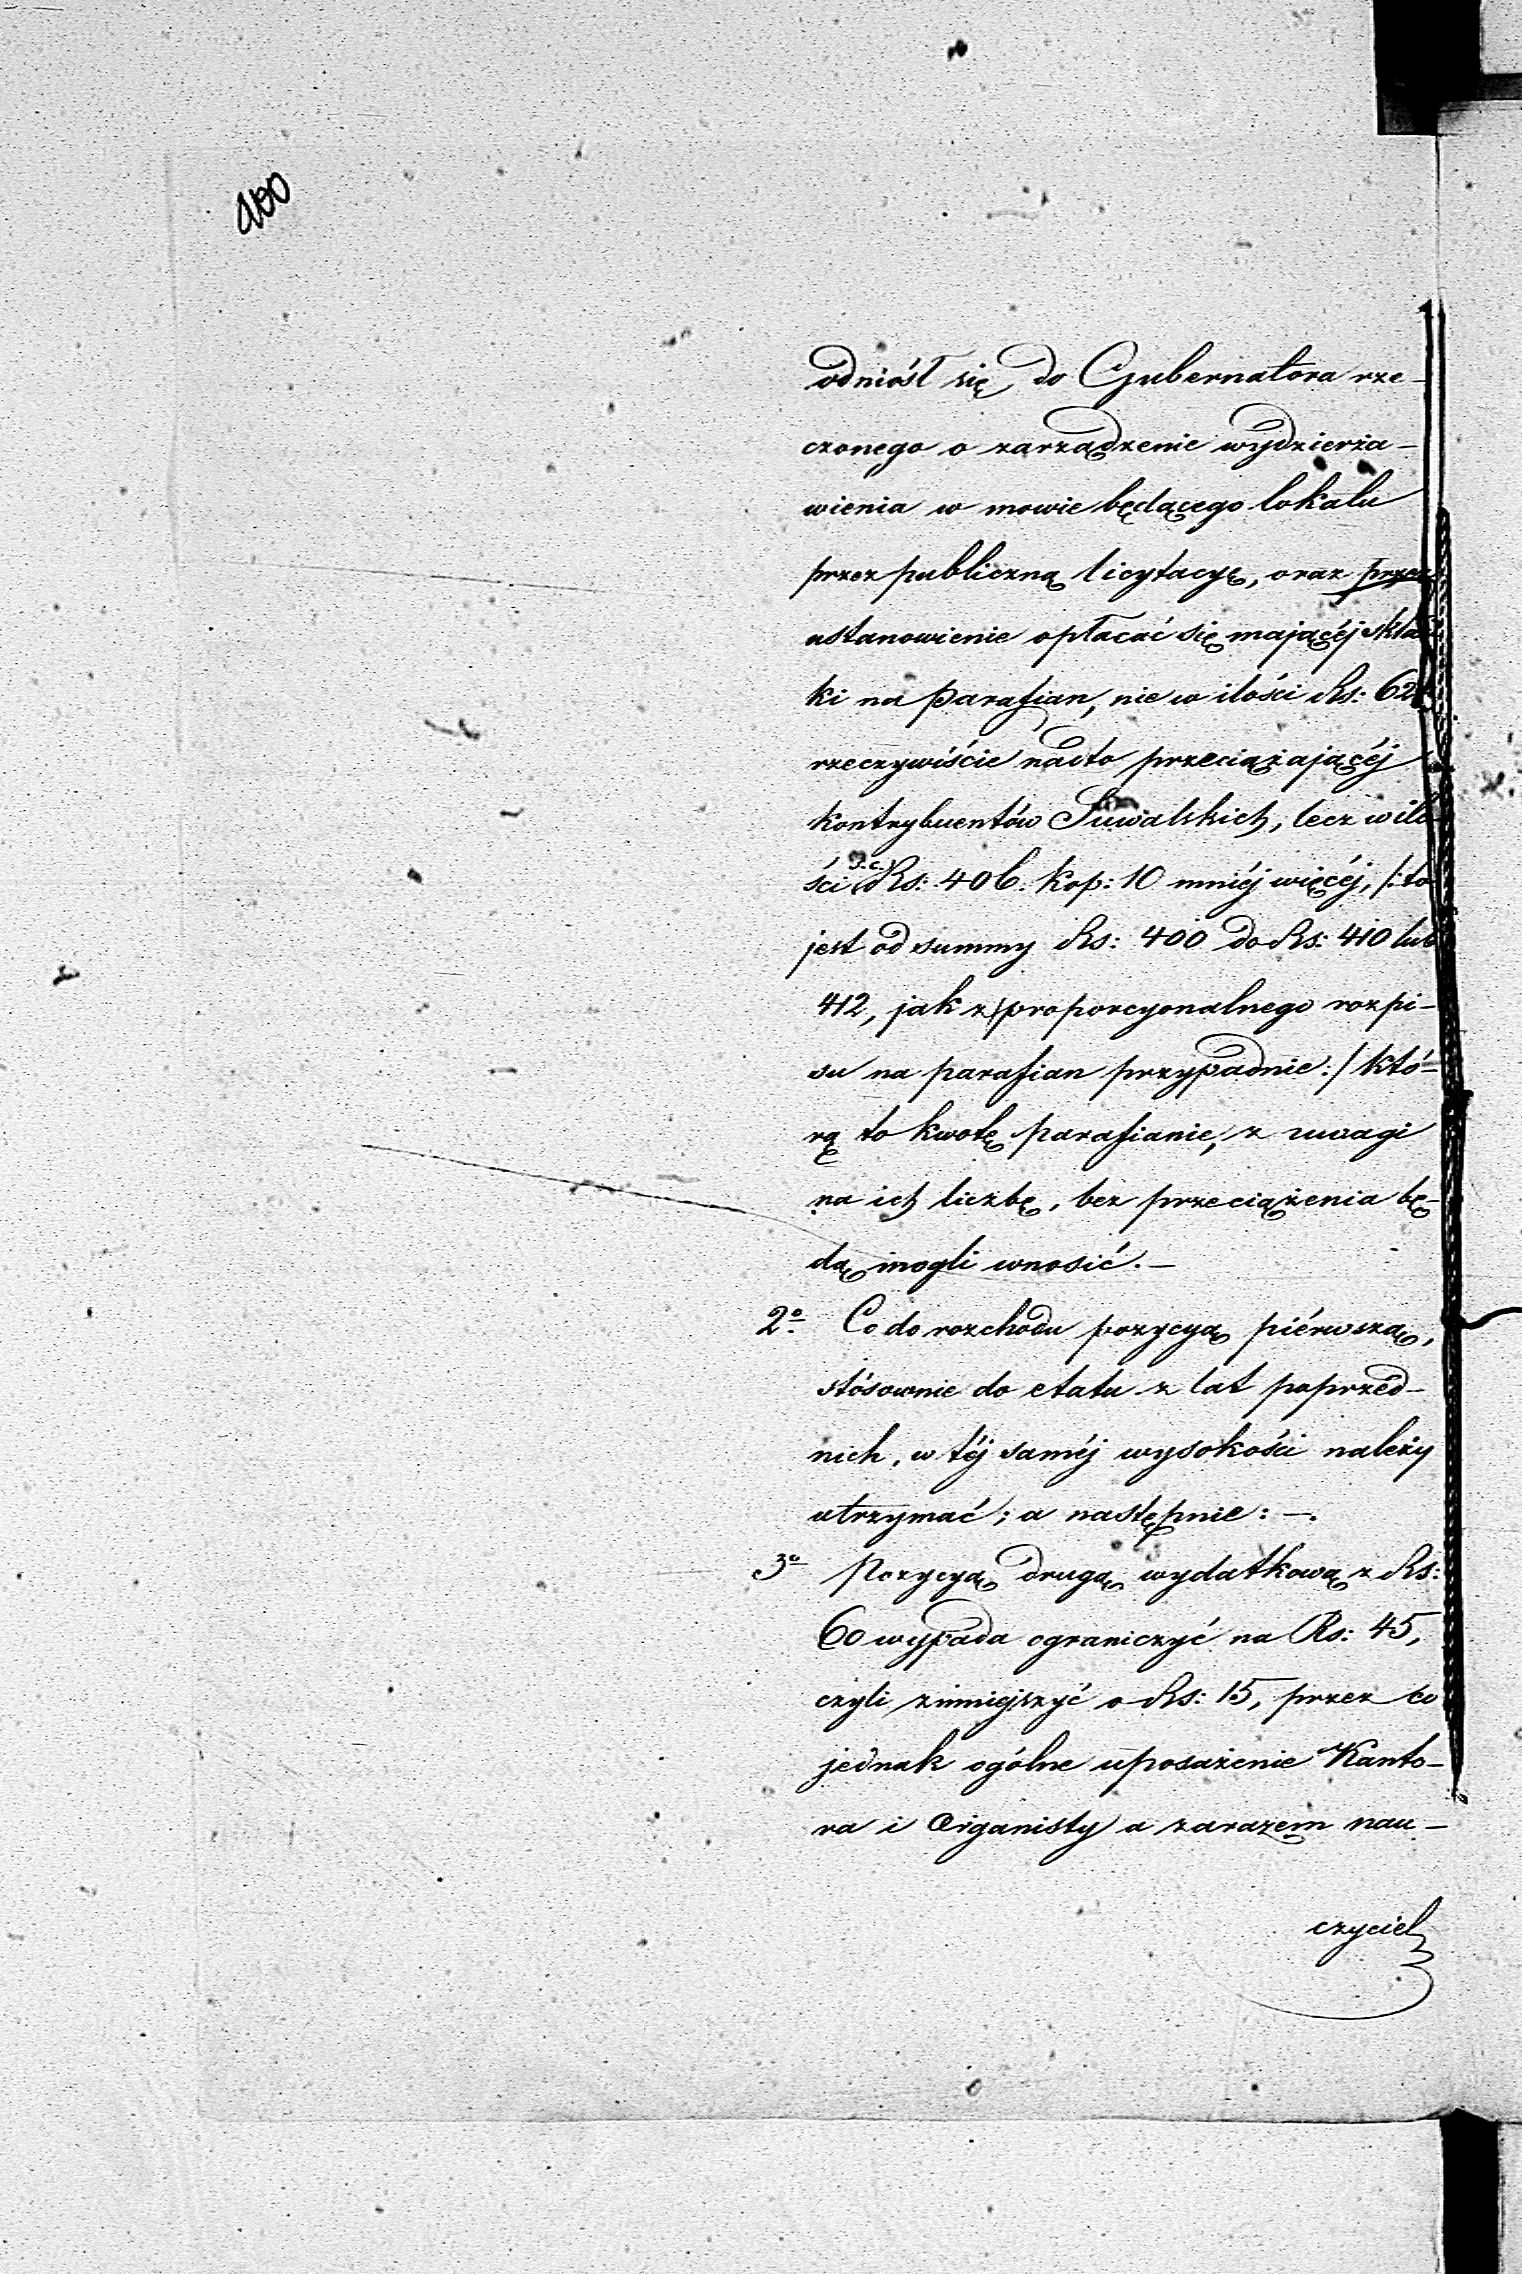 100
odniósł się do Gubernatora rze-
czonego o zarządzenie wydzierża-
wienia w mowie będącego lokalu
przez publiczną licytacyę, oraz przez
ustanowienie opłacać się mającéj skład
ki na Parafian, nie w ilości Rs:
rzeczywiście nadto przeciążającéj
kontrybuentów Suwalskich, lecz w ilo
ści Rs: 406. kop: 10 mniéj więcéj, /:to
jest od summy Rs: 400 do Rs: 410 lub
412, jak z proporcyonalnego rozpi-
su na parafian przypadnie:/ któ-
rą to kwotę parafianie, z uwagi
na ich liczbę, bez przeciążenia bę-
dą mogli wnosić.-
2º. Co do rozchodu pozycyą piérwszą,
stósownie do etatu z lat poprzed-
nich, w téj saméj wysokości należy
utrzymać; a następnie: -.
3º Pozycyą drugą wydatkową z Rs:
60 wypada ograniczyć na Rs: 45,
czyli zmniejszyć o Rs: 15, przez co
jednak ogólne uposażenie Kanto-
ra i Organisty a zarazem nau-
czyciel